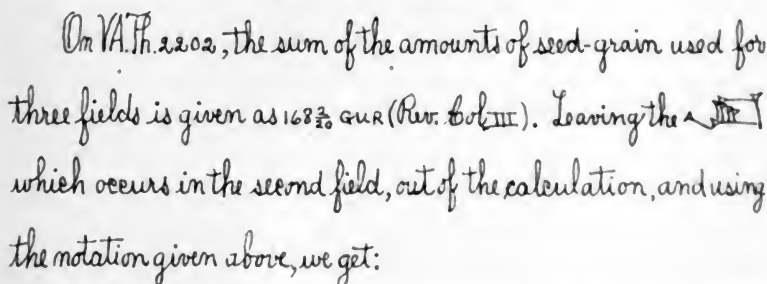 On VA.Th. 2202, the sum of the amounts of seed-grain used for
three fields is given as 168 2/20 GUR (Rev. Col. III). Leaving the
which occurs in the second field, out of the calculation, and using
the notation given above, we get: